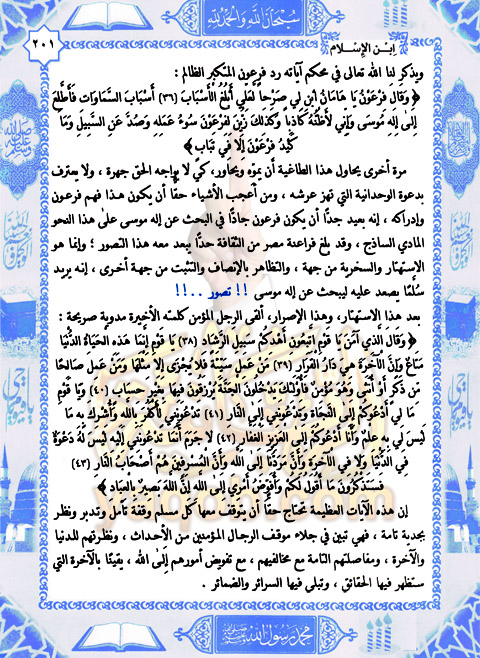 سُبْحَانَ اللَّه وَالْحَمْدُ لِلَّه
ابن الإسلام
٢٠١
ويذكر لنا الله تعالى في محكم آياته رد فرعون المتكبر الظالم :
﴿ وَقَالَ فِرْعَوْنُ يَا هَامَانُ ابْنِ لِي صَرْحاً لَّعَلِّي أَبْلُغُ الْأَسْبَابَ (٣٦) أَسْبَابَ السَّمَاوَاتِ فَأَطَّلِعَ
إِلَى إِلَهِ مُوسَى وَإِنِّي لَأَظُنُّهُ كَاذِباً وَكَذَلِكَ زُيِّنَ لِفِرْعَوْنَ سُوءُ عَمَلِهِ وَصُدَّ عَنِ السَّبِيلِ وَمَا
كَيْدُ فِرْعَوْنَ إِلَّا فِي تَبَابٍ ﴾
مرة أخرى يحاول هذا الطاغية أن يموّه ويحاور ، كيْ لا يواجه الحق جهرة ، ولا يعترف
بدعوة الوحدانية التي تهز عرشه ، ومن أعجب الأشياء حقًا أن يكون هذا فهم فرعون
وإدراكه ، إنه بعيد جدًا أن يكون فرعون جادًا في البحث عن إله موسى على هذا النحو
المادي الساذج ، وقد بلغ فراعنة مصر من الثقافة حدًا يبعد معه هذا التصور ؛ وإنما هو
الإستهتار والسخرية من جهة ، والتظاهر بالإنصاف والتثبت من جهة أخرى ، إنه يريد
سُلَّمًا يصعد عليه ليبحث عن إله موسى !! تصور ..!!
بعد هذا الإستهتار ، وهذا الإصرار ، ألقى الرجل المؤمن كلمته الأخيرة مدوية صريحة :
﴿ وَقَالَ الَّذِي آمَنَ يَا قَوْمِ اتَّبِعُونِ أَهْدِكُمْ سَبِيلَ الرَّشَادِ (٣٨) يَا قَوْمِ إِنَّمَا هَذِهِ الْحَيَاةُ الدُّنْيَا
مَتَاعٌ وَإِنَّ الْآخِرَةَ هِيَ دَارُ الْقَرَارِ (٣٩) مَنْ عَمِلَ سَيِّئَةً فَلَا يُجْزَى إِلَّا مِثْلَهَا وَمَنْ عَمِلَ صَالِحًا
مِّن ذَكَرٍ أَوْ أُنثَى وَهُوَ مُؤْمِنٌ فَأُوْلَئِكَ يَدْخُلُونَ الْجَنَّةَ يُرْزَقُونَ فِيهَا بِغَيْرِ حِسَابٍ (٤٠) وَيَا قَوْمِ
مَا لِي أَدْعُوكُمْ إِلَى النَّجَاةِ وَتَدْعُونَنِي إِلَى النَّارِ (٤١) تَدْعُونَنِي لِأَكْفُرَ بِاللهِ وَأُشْرِكَ بِهِ مَا
لَيْسَ لِي بِهِ عِلْمٌ وَأَنَا أَدْعُوكُمْ إِلَى الْعَزِيزِ الْغَفَّارِ (٤٢) لَا جَرَمَ أَنَّمَا تَدْعُونَنِي إِلَيْهِ لَيْسَ لَهُ دَعْوَةٌ
فِي الدُّنْيَا وَلَا فِي الْآخِرَةِ وَأَنَّ مَرَدَّنَا إِلَى اللهِ وَأَنَّ الْمُسْرِفِينَ هُمْ أَصْحَابُ النَّارِ (٤٣)
فَسَتَذْكُرُونَ مَا أَقُولُ لَكُمْ وَأُفَوِّضُ أَمْرِي إِلَى اللهِ إِنَّ اللهَ بَصِيرٌ بِالْعِبَادِ ﴾
إن هذه الآيات العظيمة تحتاج حقًا أن يتوقف معها كل مسلم وقفة تأمل وتدبر ونظر
بجدية تامة ، فهي تبين في جلاء موقف الرجال المؤمنين من الأحداث ، ونظرتهم للدنيا
والآخرة ، ومفاصلتهم التامة مع مخالفيهم ، مع تفويض أمورهم إلى الله ، يقينًا بالآخرة التي
ستظهر فيها الحقائق ، وتبلى فيها السرائر والضمائر .
محمد رسول الله